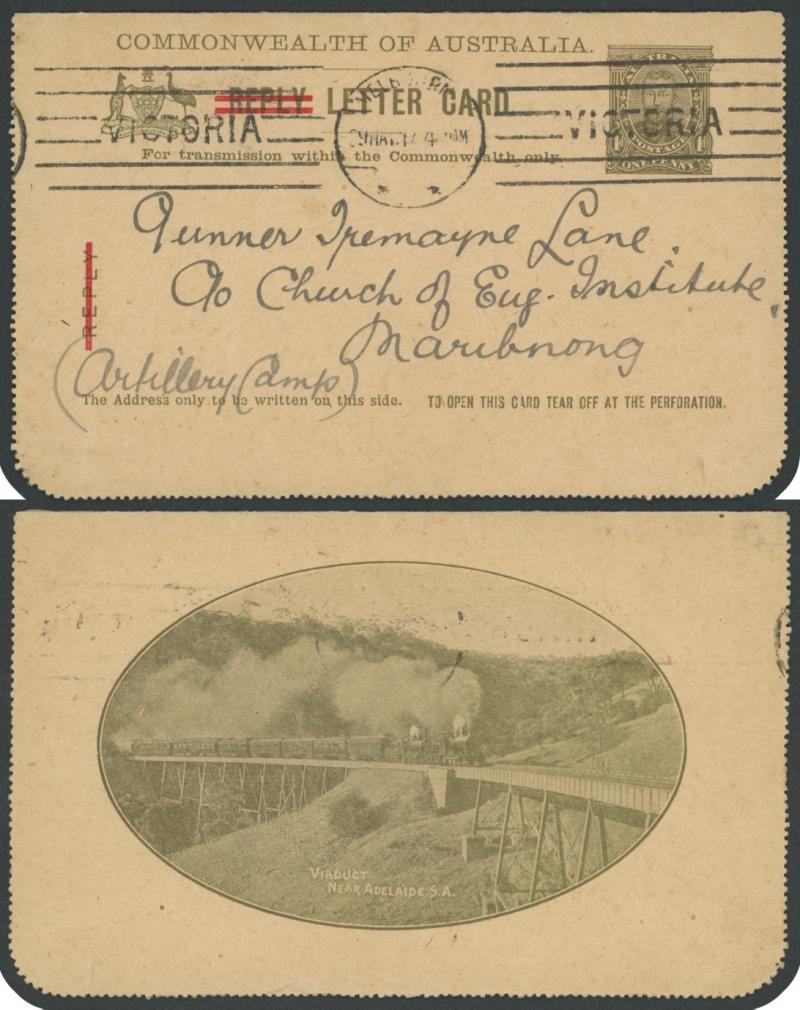 COMMONWEALTH OF AUSTRALIA.
REPLY LETTER CARD
AUSTRALIA
1 POSTAGE 1
ONE PENNY
VICTORIA
VICTORIA
For transmission within the Commonwealth only.
Gunner Tremayne Lane.
c/o Church of Eng. Institute,
Maribnong
(Artillery Camp)
REPLY
The Address only to be written on this side. TO OPEN THIS CARD TEAR OFF AT THE PERFORATION.
VIADUCT
NEAR ADELAIDE. S.A.